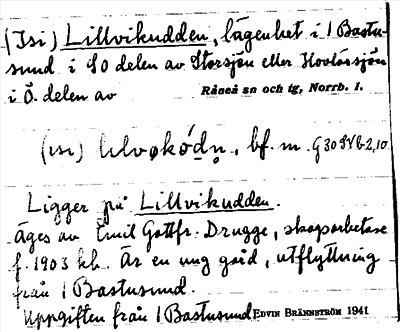 (Isi) Lillvikudden, lägenhet i 1 Bastu-
sund i SO delen av Storsjön eller Hovlössjön
i Ö. delen av Råneå sn och tg, Norrb. l.
(isi) bf. m.
Ligger på Lillvikudden.
Äges av Emil Gottfr. Drugge, skogsarbetare
f. 1903 kb. Är en ung gård, utflyttning
från 1 Bastusund.
Uppgiften från 1 Bastusund EDVIN BRÄNNSTRÖM 1941